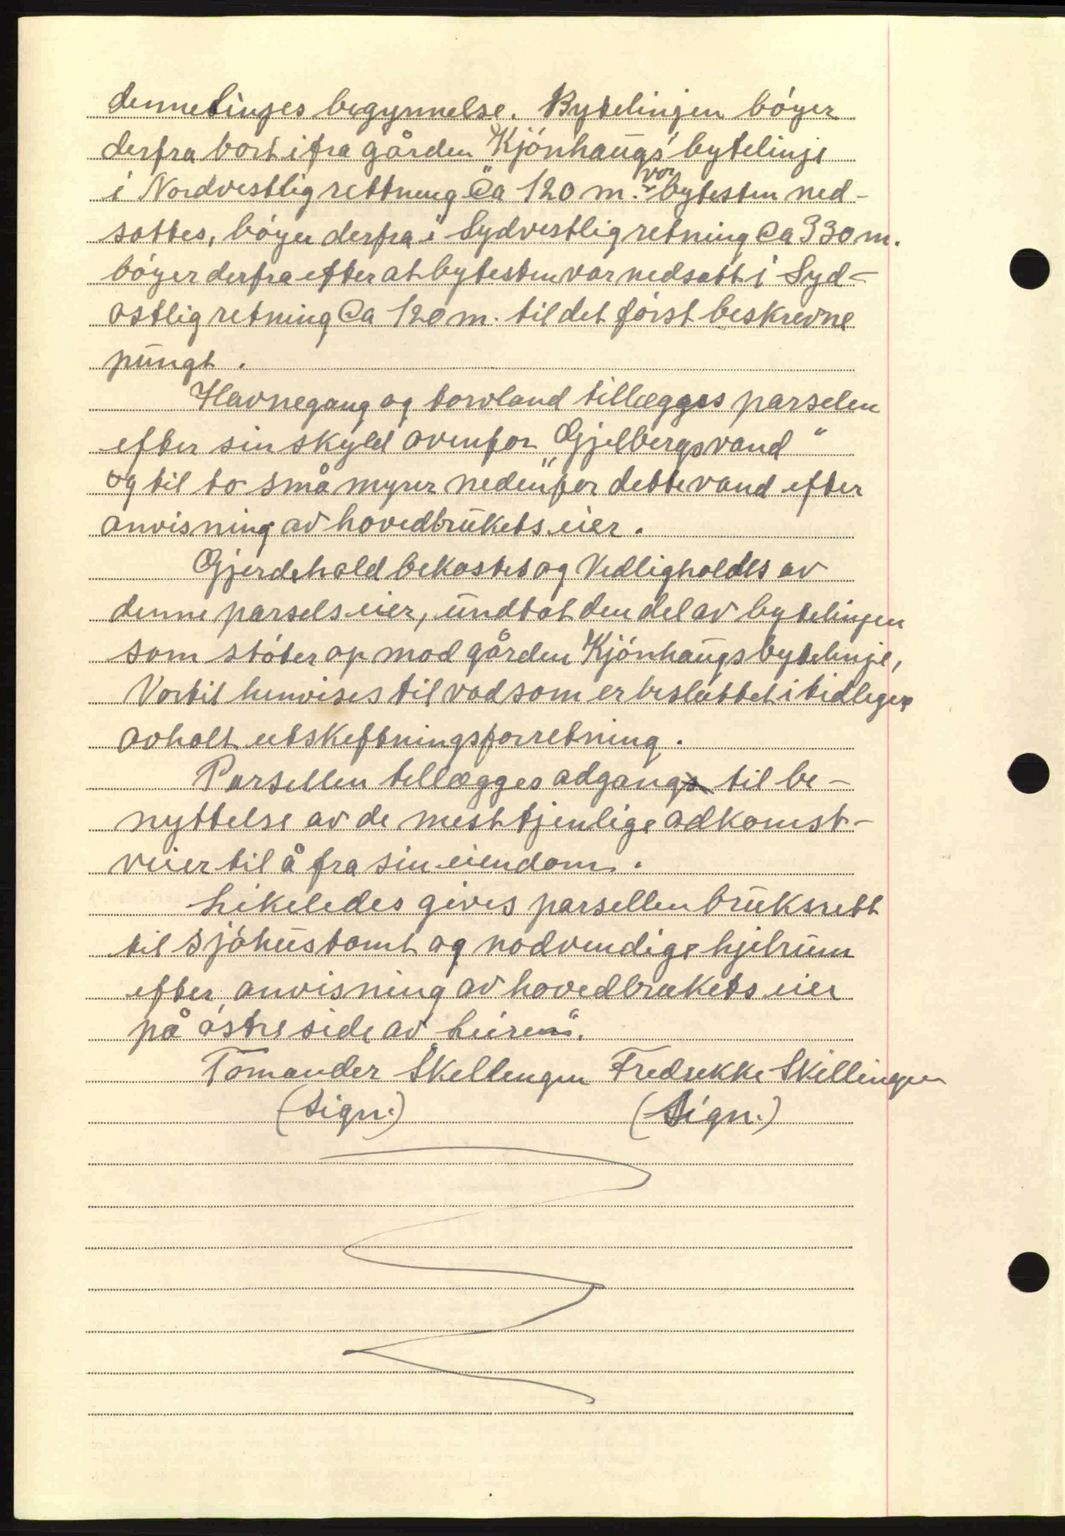 denne linjes begynnelse. Bytelinjen böyer
derfra bort ifra gården "Kjönhaugs" bytelinje
i Nordvestlig rettning Ca 120 m. vor bytesten ned-
sattes, böyer derfra i Sydvestlig retning Ca 330 m.
böyer derfra efter at bytesten var nedsatt i Syd-
ostlig retning Ca 120 m. til det först beskrevne
pungt.
Havnegang og torvland tillægges parselen
efter sin skyld ovenfor "Gjelbergsvand"
og til to små myrer nedenfor dette vand efter
anvisning av hovedbrukets eier.
Gjerdehold bekostes og Vedligholdes av
denne parsels eier, undtat den del av bytelinjen
som stöter op mod gården Kjönhaugs bytelinje,
Vortil henvises til vad som er besluttet i tidligere
avholt utskeftningsforretning.
Parsellen tillægges adgang til be-
nyttelse av de mest tjenlige adkomst-
veier til å fra sin eiendom.
Likeledes gives parsellen bruksrett
til sjöhustomt og nodvendige hjelrum
efter anvisning av hovedbrukets eier
på östre side av "Leiren".
Tomander Skellengen Fredrekke Skillingen
(Sign.) (Sign.)